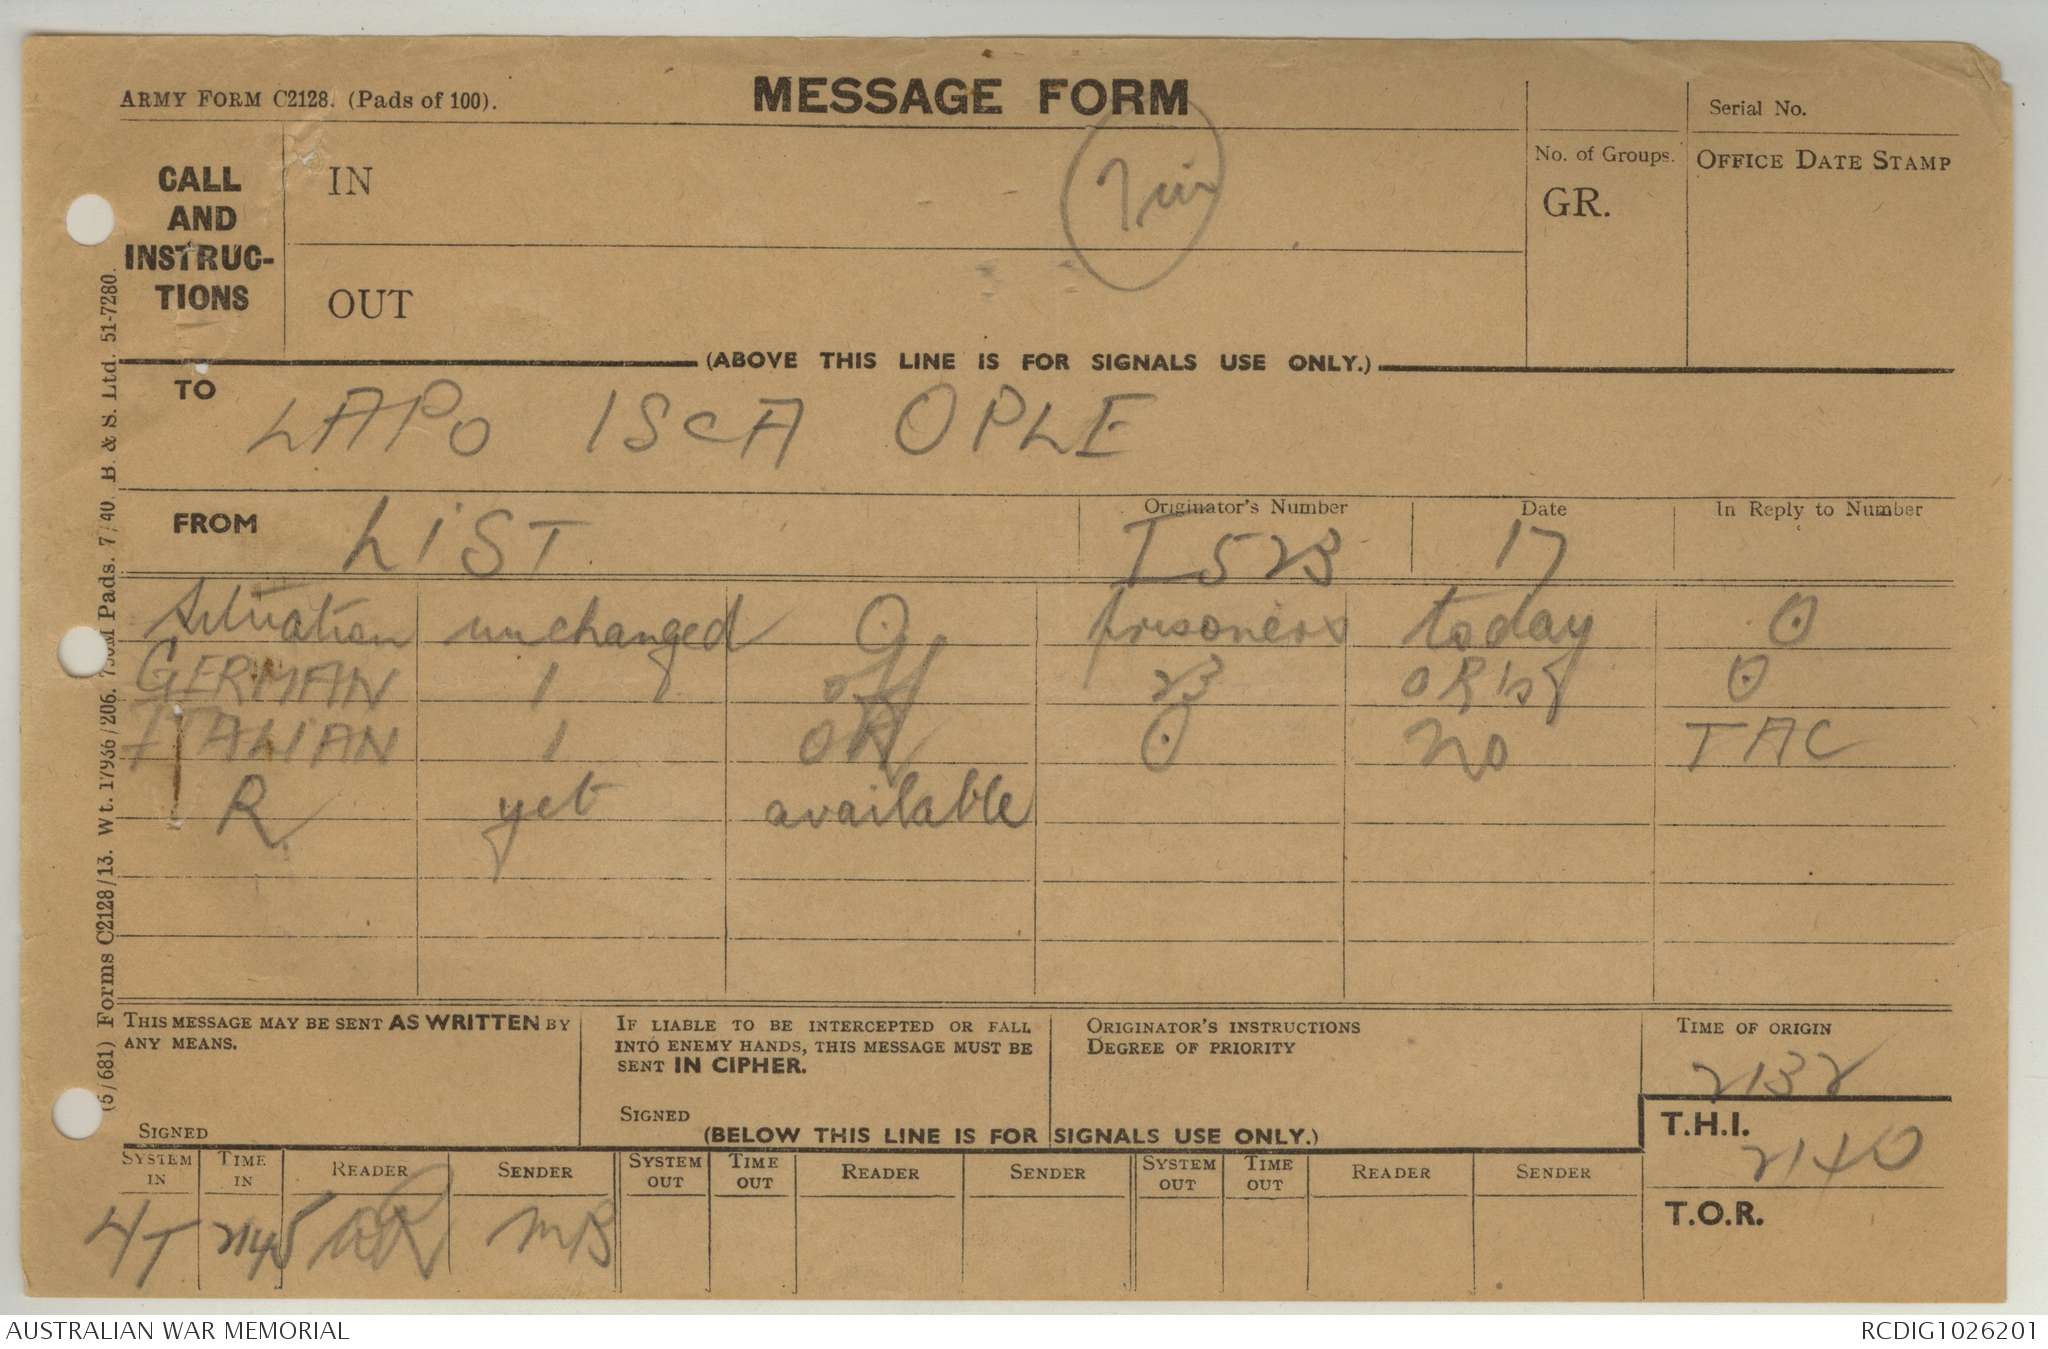 ARMY FORM C2128. (Pads of 100).
MESSAGE FORM
Serial No.
CALL AND INSTRUC-TIONS
IN
No. of Groups.
GR.
OFFICE DATE STAMP
OUT
(ABOVE THIS LINE IS FOR SIGNALS USE ONLY.)
TO
LAPO ISCA OPLE
FROM LIST
Originator's Number I 523
Date 17
In Reply to Number
Situation unchanged O prisoners today O
GERMAN 1 off 23 O
ITALIAN 1 OR O no TAC
R yet available
THIS MESSAGE MAY BE SENT AS WRITTEN BY ANY MEANS.
SIGNED
IF LIABLE TO BE INTERCEPTED OR FALL INTO ENEMY HANDS, THIS MESSAGE MUST BE SENT IN CIPHER.
SIGNED
ORIGINATOR'S INSTRUCTIONS
DEGREE OF PRIORITY
TIME OF ORIGIN
2132
T.H.I.
2140
T.O.R.
(BELOW THIS LINE IS FOR SIGNALS USE ONLY.)
SYSTEM IN TIME IN READER SENDER SYSTEM OUT TIME OUT READER SENDER SYSTEM OUT TIME OUT READER SENDER
2145 MB
(6/681) Forms C2128/13. Wt. 17966/206. 750M Pads. 7/40. B. & S. Ltd. 51-7280.
AUSTRALIAN WAR MEMORIAL
RCDIG1026201